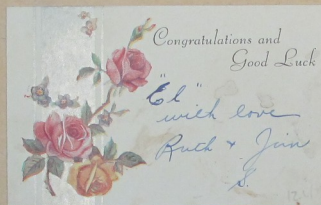 Congratulations and
Good Luck
"El"
with love
Ruth + Jim
S.